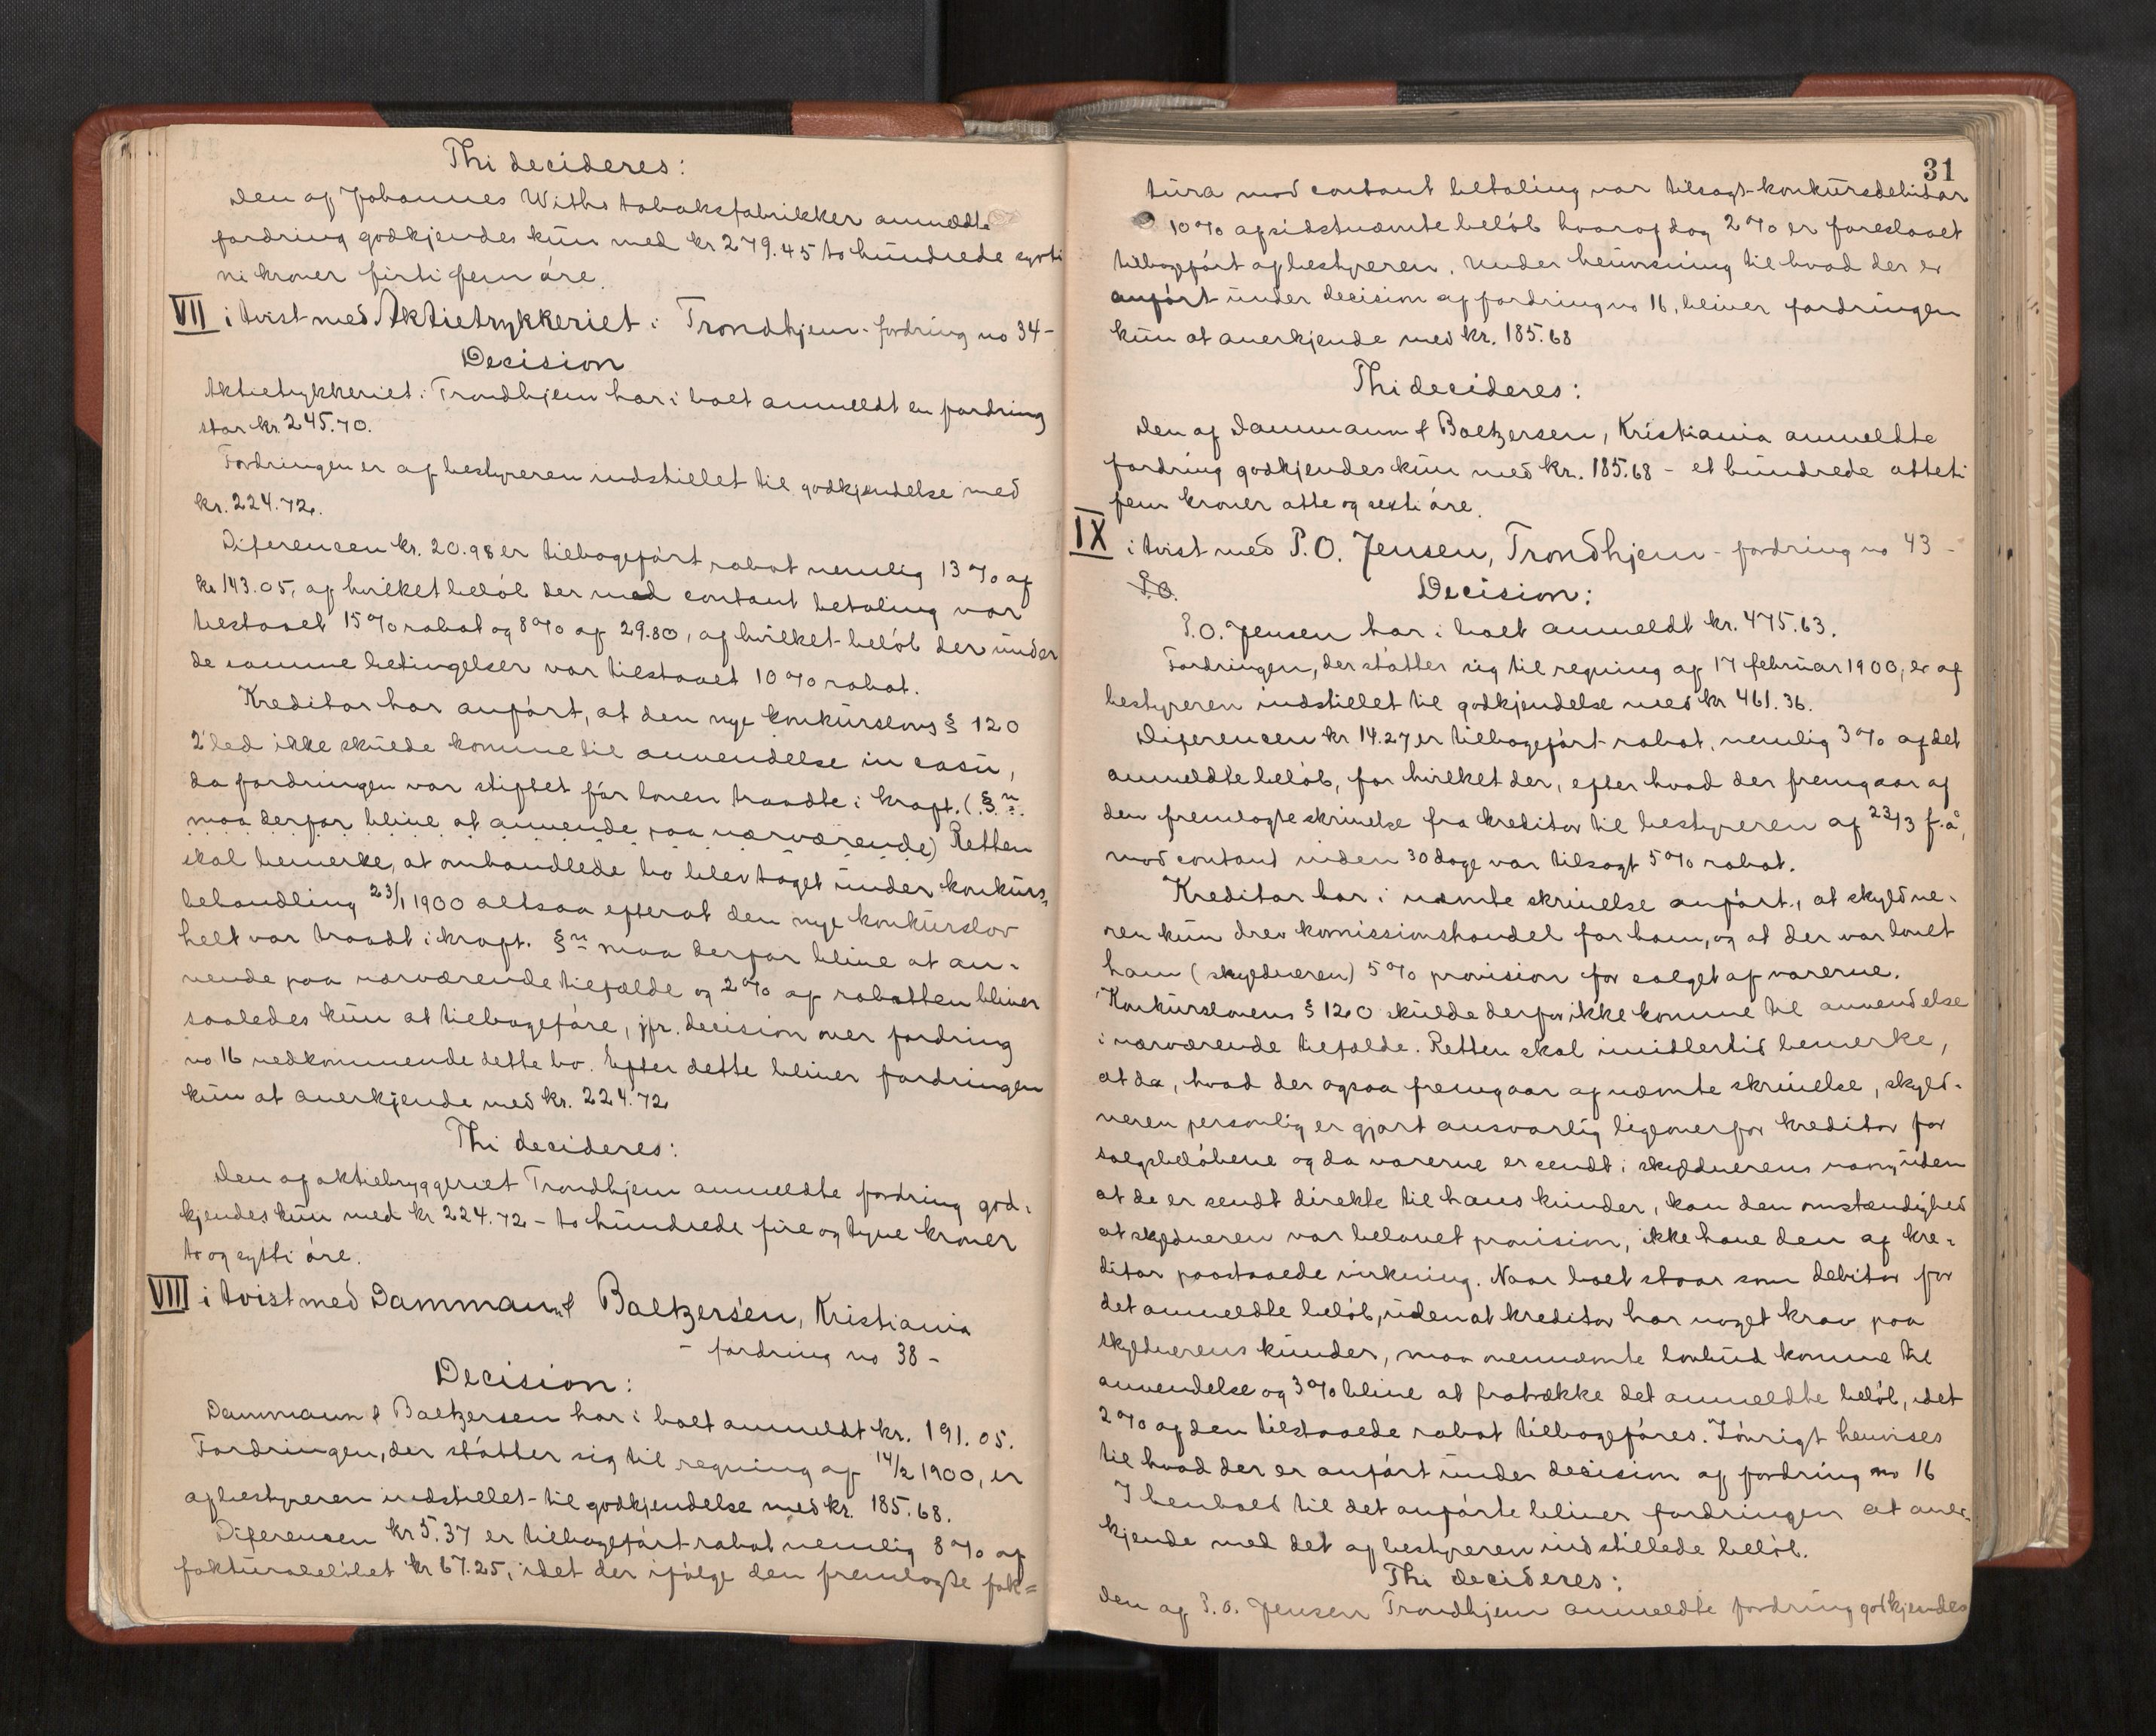 Thi decideres:
Den af Johannes Withs tobaksfabrikker anmeldte
fordring godkjendes kun med kr 279.45 to hundrede sytti
ni kroner firti fem øre.
VII i tvist med Aktietrykkeriet i Trondhjem - fordring no 34 -
Decision
Aktietrykkeriet i Trondhjem har i boet anmeldt en fordring
stor kr. 245.70.
Fordringen er af bestyreren indstillet til godkjendelse med
kr. 224.72.
Diferencen kr. 20.98 er tilbageført rabat nemlig 13 % af
kr 143.05, af hvilket beløb der med contant betaling var
tilstaaet 15 % rabat og 8 % af 29.80, af hvilket beløb der under
de samme betingelser var tilstaaet 10 % rabat.
Kreditor har anført, at den nye konkurslovs § 120
2' led ikke skulde komme til anvendelse in casu,
da fordringen var stiftet før loven traadte i kraft. (§ n
maa derfor blive at anvende paa nærværende) Retten
skal bemerke, at omhandlede bo blev taget under konkurs-
behandling 23/1 1900 altsaa efterat den nye konkurslov
helt var traadt i kraft. § n maa derfor blive at an-
vende paa nærværende tilfælde og 2 % af rabatten bliver
saaledes kun at tilbageføre, jfr. decision over fordring
no 16 vedkommende dette bo. Efter dette bliver fordringen
kun at anerkjende med kr. 224.72
Thi decideres:
Den af aktietryggeriet Trondhjem anmeldte fordring god-
kjendes kun med kr 224.72 - to hundrede fire og tyve kroner
to og sytti øre.
VIII i tvist med Dammann & Baltzersen, Kristiania
- fordring no 38 -
Decision:
Dammann & Baltzersen har i boet anmeldt kr. 191.05.
Fordringen, der støtter sig til regning af 14/2 1900, er
af bestyreren indstillet til godkjendelse med kr. 185.68.
Diferensen kr 5.37 er tilbageført rabat nemlig 8 % af
fakturabeløbet kr 67.25, idet der ifølge den fremlagte fak=
31
tura mod contant betaling var tilsagt konkursdebitor
10 % af sidstnæmte beløb hvoraf dog 2 % er foreslaaet
tilbageført af bestyreren. Under henvisning til hvad der er
anført under decision af fordring no 16, bliver fordringen
kun at anerkjende med kr. 185.68
Thi decideres:
Den af Dammann & Baltzersen, Kristiania anmeldte
fordring godkjendes kun med kr. 185.68 - et hundrede otteti
fem kroner otte og sexti øre.
IX i tvist med P.O. Jensen, Trondhjem - fordring no 43 -
P.O. Decision:
P.O. Jensen har i boet anmeldt kr. 475.63.
Fordringen, der støtter sig til regning af 17 februar 1900, er af
bestyreren indstillet til godkjendelse med kr 461.36.
Diferencen kr 14.27 er tilbageført rabat, nemlig 3 % af det
anmeldte beløb, for hvilket der, efter hvad der fremgaar af
den fremlagte skrivelse fra kreditor til bestyreren af 23/3 f.å,
mod contant inden 30 dage var tilsagt 5 % rabat.
Kreditor har i næmte skrivelse anført, at skyldne-
ren kun drev komissionshandel for ham, og at der var lovet
ham (skyldneren) 5 % provision for salget af varerne.
Konkurslovens § 120 skulde derfor ikke komme til anvendelse
i nærværende tilfælde. Retten skal imidlertid bemerke,
at da, hvad der ogsaa fremgaar af næmte skrivelse, skyld-
neren personlig er gjort ansvarlig ligeoverfor kreditor for
salgsbeløbene og da varerne er sendt i skyldnerens navn, uden
at de er sendt direkte til hans kunder, kan den omstændighed
at skyldneren var belovet provision, ikke have den af kre-
ditor paastaaede virkning. Naar boet staar som debitor for
det anmeldte beløb, uden at kreditor har noget krav paa
skyldnerens kunder, maa ovennæmte lovbud komme til
anvendelse og 3 % blive at fratrække det anmeldte beløb, idet
2 % af den tilstaaede rabat tilbageføres. Iøvrigt henvises
til hvad der er anført under decision af fordring no 16
I henhold til det anførte bliver fordringen at aner-
kjende med det af bestyreren indstillede beløb.
Thi decideres:
Den af P.O. Jensen Trondhjem anmeldte fordring godkjendes